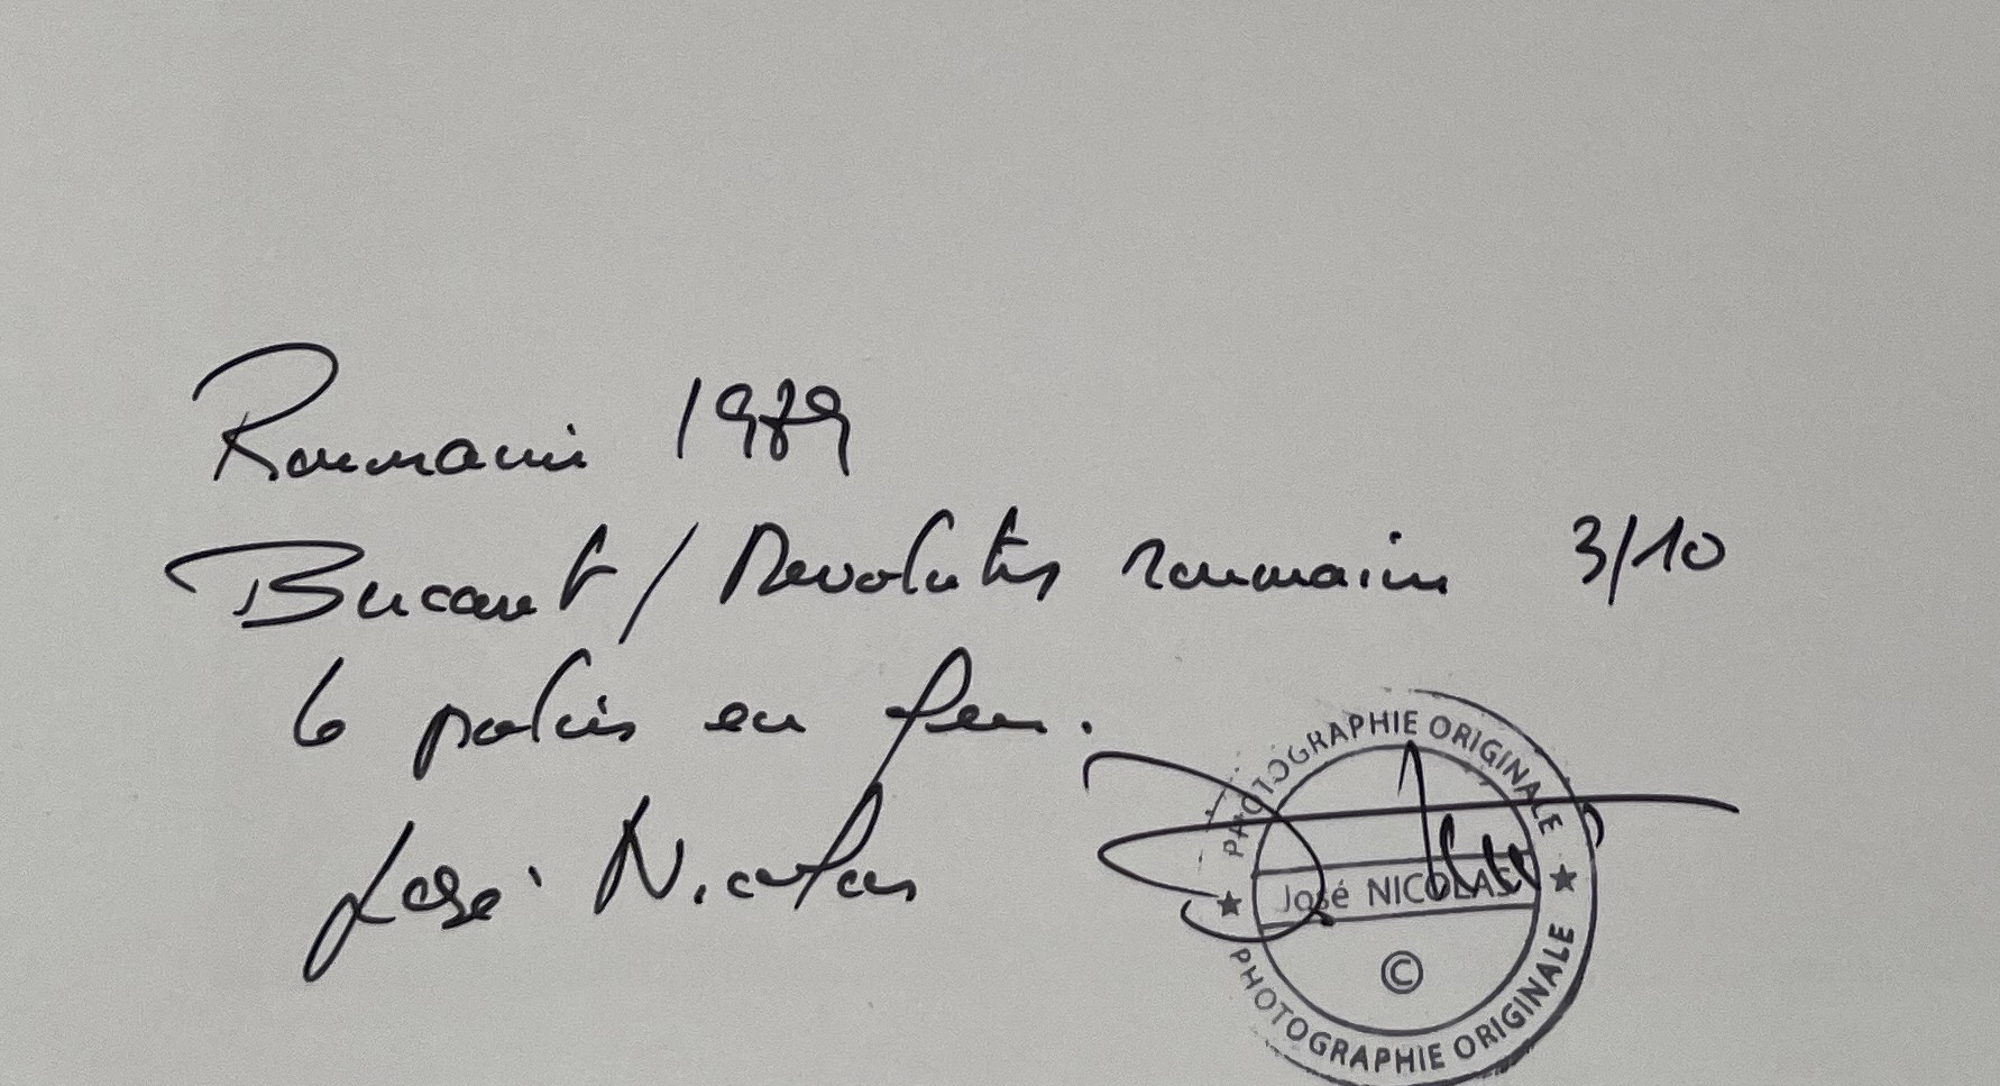 Roumanie 1989
Bucarest / Revolution roumaine 3/10
le palais en feu.
José Nicolas
PHOTOGRAPHIE ORIGINALE
José NICOLAS
©
PHOTOGRAPHIE ORIGINALE